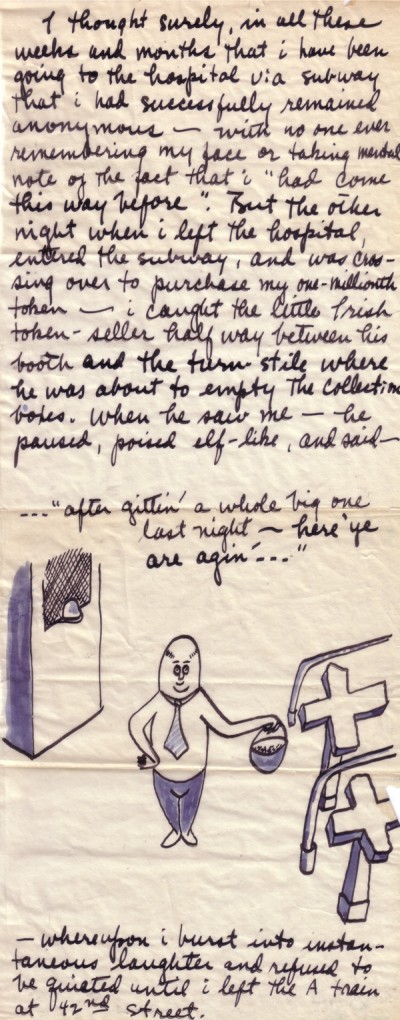 I thought surely, in all these
weeks and months that i have been
going to the hospital via subway
that i had successfully remained
anonymous — with no one ever
remembering my face or taking mental
note of the fact that i "had come
this way before". But the other
night when i left the hospital,
entered the subway, and was cros-
sing over to purchase my one-millionth
token — i caught the little Irish
token-seller half way between his
booth and the turn-stile where
he was about to empty the collection
boxes. When he saw me — he
paused, poised elf-like, and said—
..."after gittin' a whole big one
last night — here 'ye
are agin'..."
— whereupon i burst into instan-
taneous laughter and refused to
be quieted until i left the A train
at 42nd street.